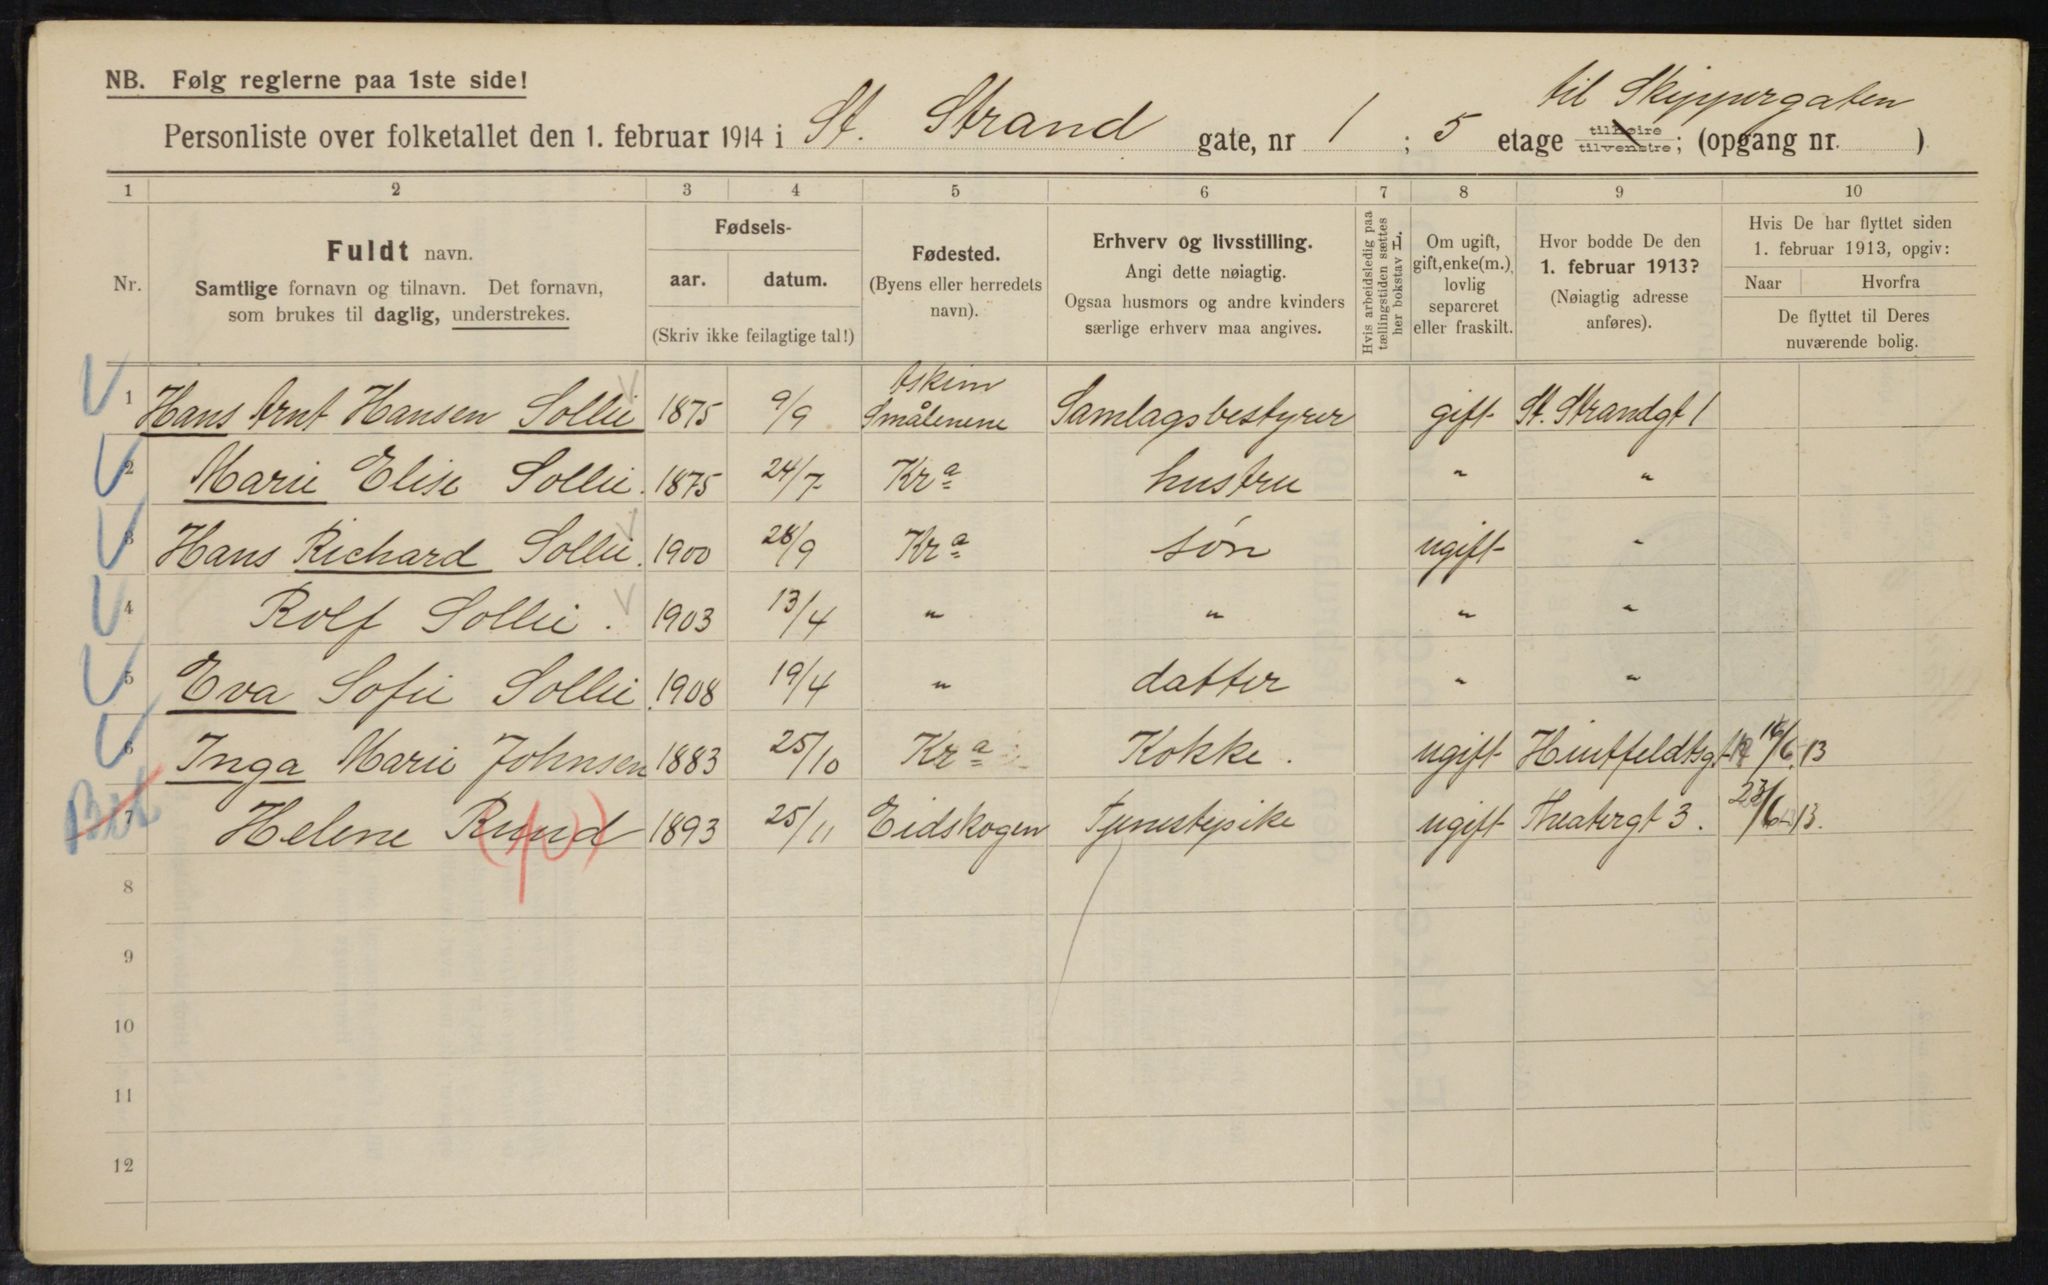 NB. Følg reglerne paa 1ste side!
til Skippergaten
Personliste over folketallet den 1. februar 1914 i St. Strand gate, nr 1 ; 5 etage tilhøire tilvenstre; (opgang nr. )
1 2 3 4 5 6 7 8 9 10
Nr.
Fuldt navn.
Samtlige fornavn og tilnavn. Det fornavn,
som brukes til daglig, understrekes.
Fødsels-
aar. datum.
(Skriv ikke feilagtige tal!)
Fødested.
(Byens eller herredets
navn).
Erhverv og livsstilling.
Angi dette nøiagtig.
Ogsaa husmors og andre kvinders
særlige erhverv maa angives.
Hvis arbeidsledig paa
tællingstiden sættes
her bokstav L.
Om ugift,
gift, enke(m.),
lovlig
separeret
eller fraskilt.
Hvor bodde De den
1. februar 1913?
(Nøiagtig adresse
anføres).
Hvis De har flyttet siden
1. februar 1913, opgiv:
Naar Hvorfra
De flyttet til Deres
nuværende bolig.
1 Hans Arnt Hansen Sollie 1875 9/9 Askim Smålenene Samlagsbestyrer gift St. Strandgt 1
2 Marie Elise Sollie. 1875 24/7 Kra hustru " "
3 Hans Richard Sollie. 1900 28/9 Kra søn ugift "
4 Rolf Sollie. 1903 13/4 " " " "
5 Eva Sofie Sollie. 1908 19/4 " datter " "
6 Inga Marie Johnsen 1883 25/10 Kra Kokke. ugift Huitfeldtsgt 16/6 13
7 Helene Rund 1893 25/11 Eidskogen Tjenestepike ugift Theatergt 3. 23/6 13.
8
9
10
11
12